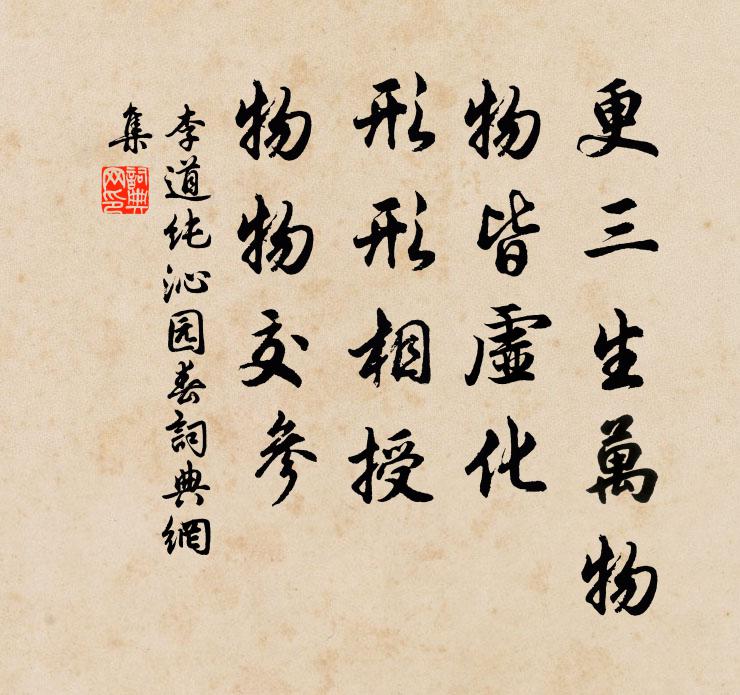 更三生萬物
物皆虛化
形形相授
物物交參
李道纯沁园春詞典網
集
詞典
网印